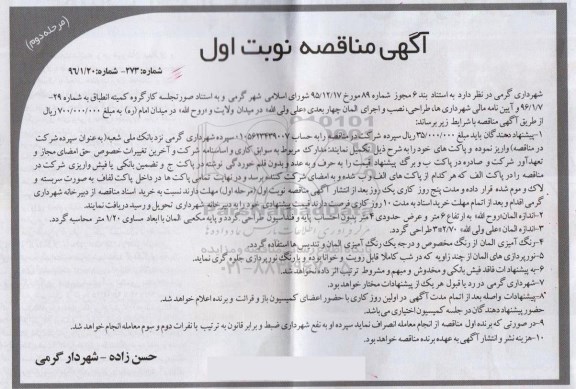 (مرحله دوم)
آگهی مناقصه نوبت اول
شماره: ۲۷۳- شماره: ۹۶/۱/۲۰
شهرداری گرمی در نظر دارد به استناد بند ۶ مجوز شماره ۸۹ مورخ ۹۵/۱۲/۱۷ شورای اسلامی شهر گرمی و به استناد صورتجلسه کارگروه کمیته انطباق به شماره ۲۹-
۹۶/۱/۷ و آیین نامه مالی شهرداری ها، طراحی، نصب و اجرای المان چهار بعدی «علی ولی الله» در میدان ولایت و «روح الله» در میدان امام (ره) به مبلغ ۷۰۰/۰۰۰/۰۰۰ ریال
از طریق آگهی مناقصه با شرایط زیر برساند:
۱-پیشنهاد دهندگان باید مبلغ ۳۵/۰۰۰/۰۰۰ ریال سپرده شرکت در مناقصه را به حساب ۱۰۵۶۲۳۳۳۹۰۰۷ سپرده شهرداری گرمی نزد بانک ملی شعبه( به عنوان سپرده شرکت
در مناقصه) واریز نموده و پاکت های خود را به شرح ذیل تکمیل نمایند: مدارک مربوط به سوابق کاری و اساسنامه شرکت و آخرین تغییرات خصوص حق امضای مجاز و
تعهدآور شرکت و صادره در پاکت ب و برگ پیشنهاد قیمت را به حرف و به عدد و بدون قلم خوردگی نوشته در پاکت ج و تضمین بانکی یا فیش واریزی شرکت در
مناقصه را در پاکت الف که هر کدام از پاکت های الف و ب و ج مهر شده و به امضای شرکت کننده برسد و در نهایت تمامی پاکت ها در داخل پاکت لفاف به صورت سربسته و
لاک و موم شده قرار داده و مدت پنج روز کاری یک روز بعد از انتشار آگهی مناقصه نوبت اول (مرحله اول) مهلت دارند نسبت به خرید اسناد مناقصه از دبیرخانه شهرداری
گرمی اقدام و بعد از اتمام مهلت خرید اسناد به مدت ۱۰ روز کاری فرصت دارند قیمت پیشنهادی خود را به دبیرخانه شهرداری تحویل و رسید دریافت نمایند.
۲-اندازه المان«روح الله» به ارتفاع ۶ متر و عرض حدودی ۴ متر بدون احتساب پایه و فنداسیون طراحی گردد و پایه مکعبی المان با ابعاد مساوی ۱/۲۰ متر محاسبه گردد.
۳-اندازه المان «علی ولی الله» ۲/۷۰×۳ طراحی گردد.
۴-رنگ آمیزی المان از رنگ مخصوص و درجه یک رنگ آمیزی المان و تندیس ها استفاده گردد.
۵-نورپردازی های المان از چند زاویه که در شب کاملا قابل رویت و خوانا بوده و با رنگ نورپردازی جلوه گری نماید.
۶-به پیشنهادات فاقد فیش بانکی و مخدوش و مبهم و مشروط ترتیب اثر داده نخواهد شد.
۷-شهرداری گرمی در رد یا قبول هر یک از پیشنهادات مختار خواهد بود.
۸-پیشنهادات واصله بعد از اتمام مدت آگهی در اولین روز کاری با حضور اعضای کمیسیون باز و قرائت و برنده اعلام خواهد شد.
حضور پیشنهاد دهندگان در جلسه کمیسیون اختیاری می باشد.
۹-در صورتی که برنده اول مناقصه از انجام معامله انصراف نماید سپرده او به نفع شهرداری ضبط و برابر قانون به ترتیب با نفرات دوم و سوم معامله انجام خواهد شد.
۱۰-هزینه نشر و انتشار آگهی به عهده برنده مناقصه خواهد بود.
حسن زاده - شهردار گرمی